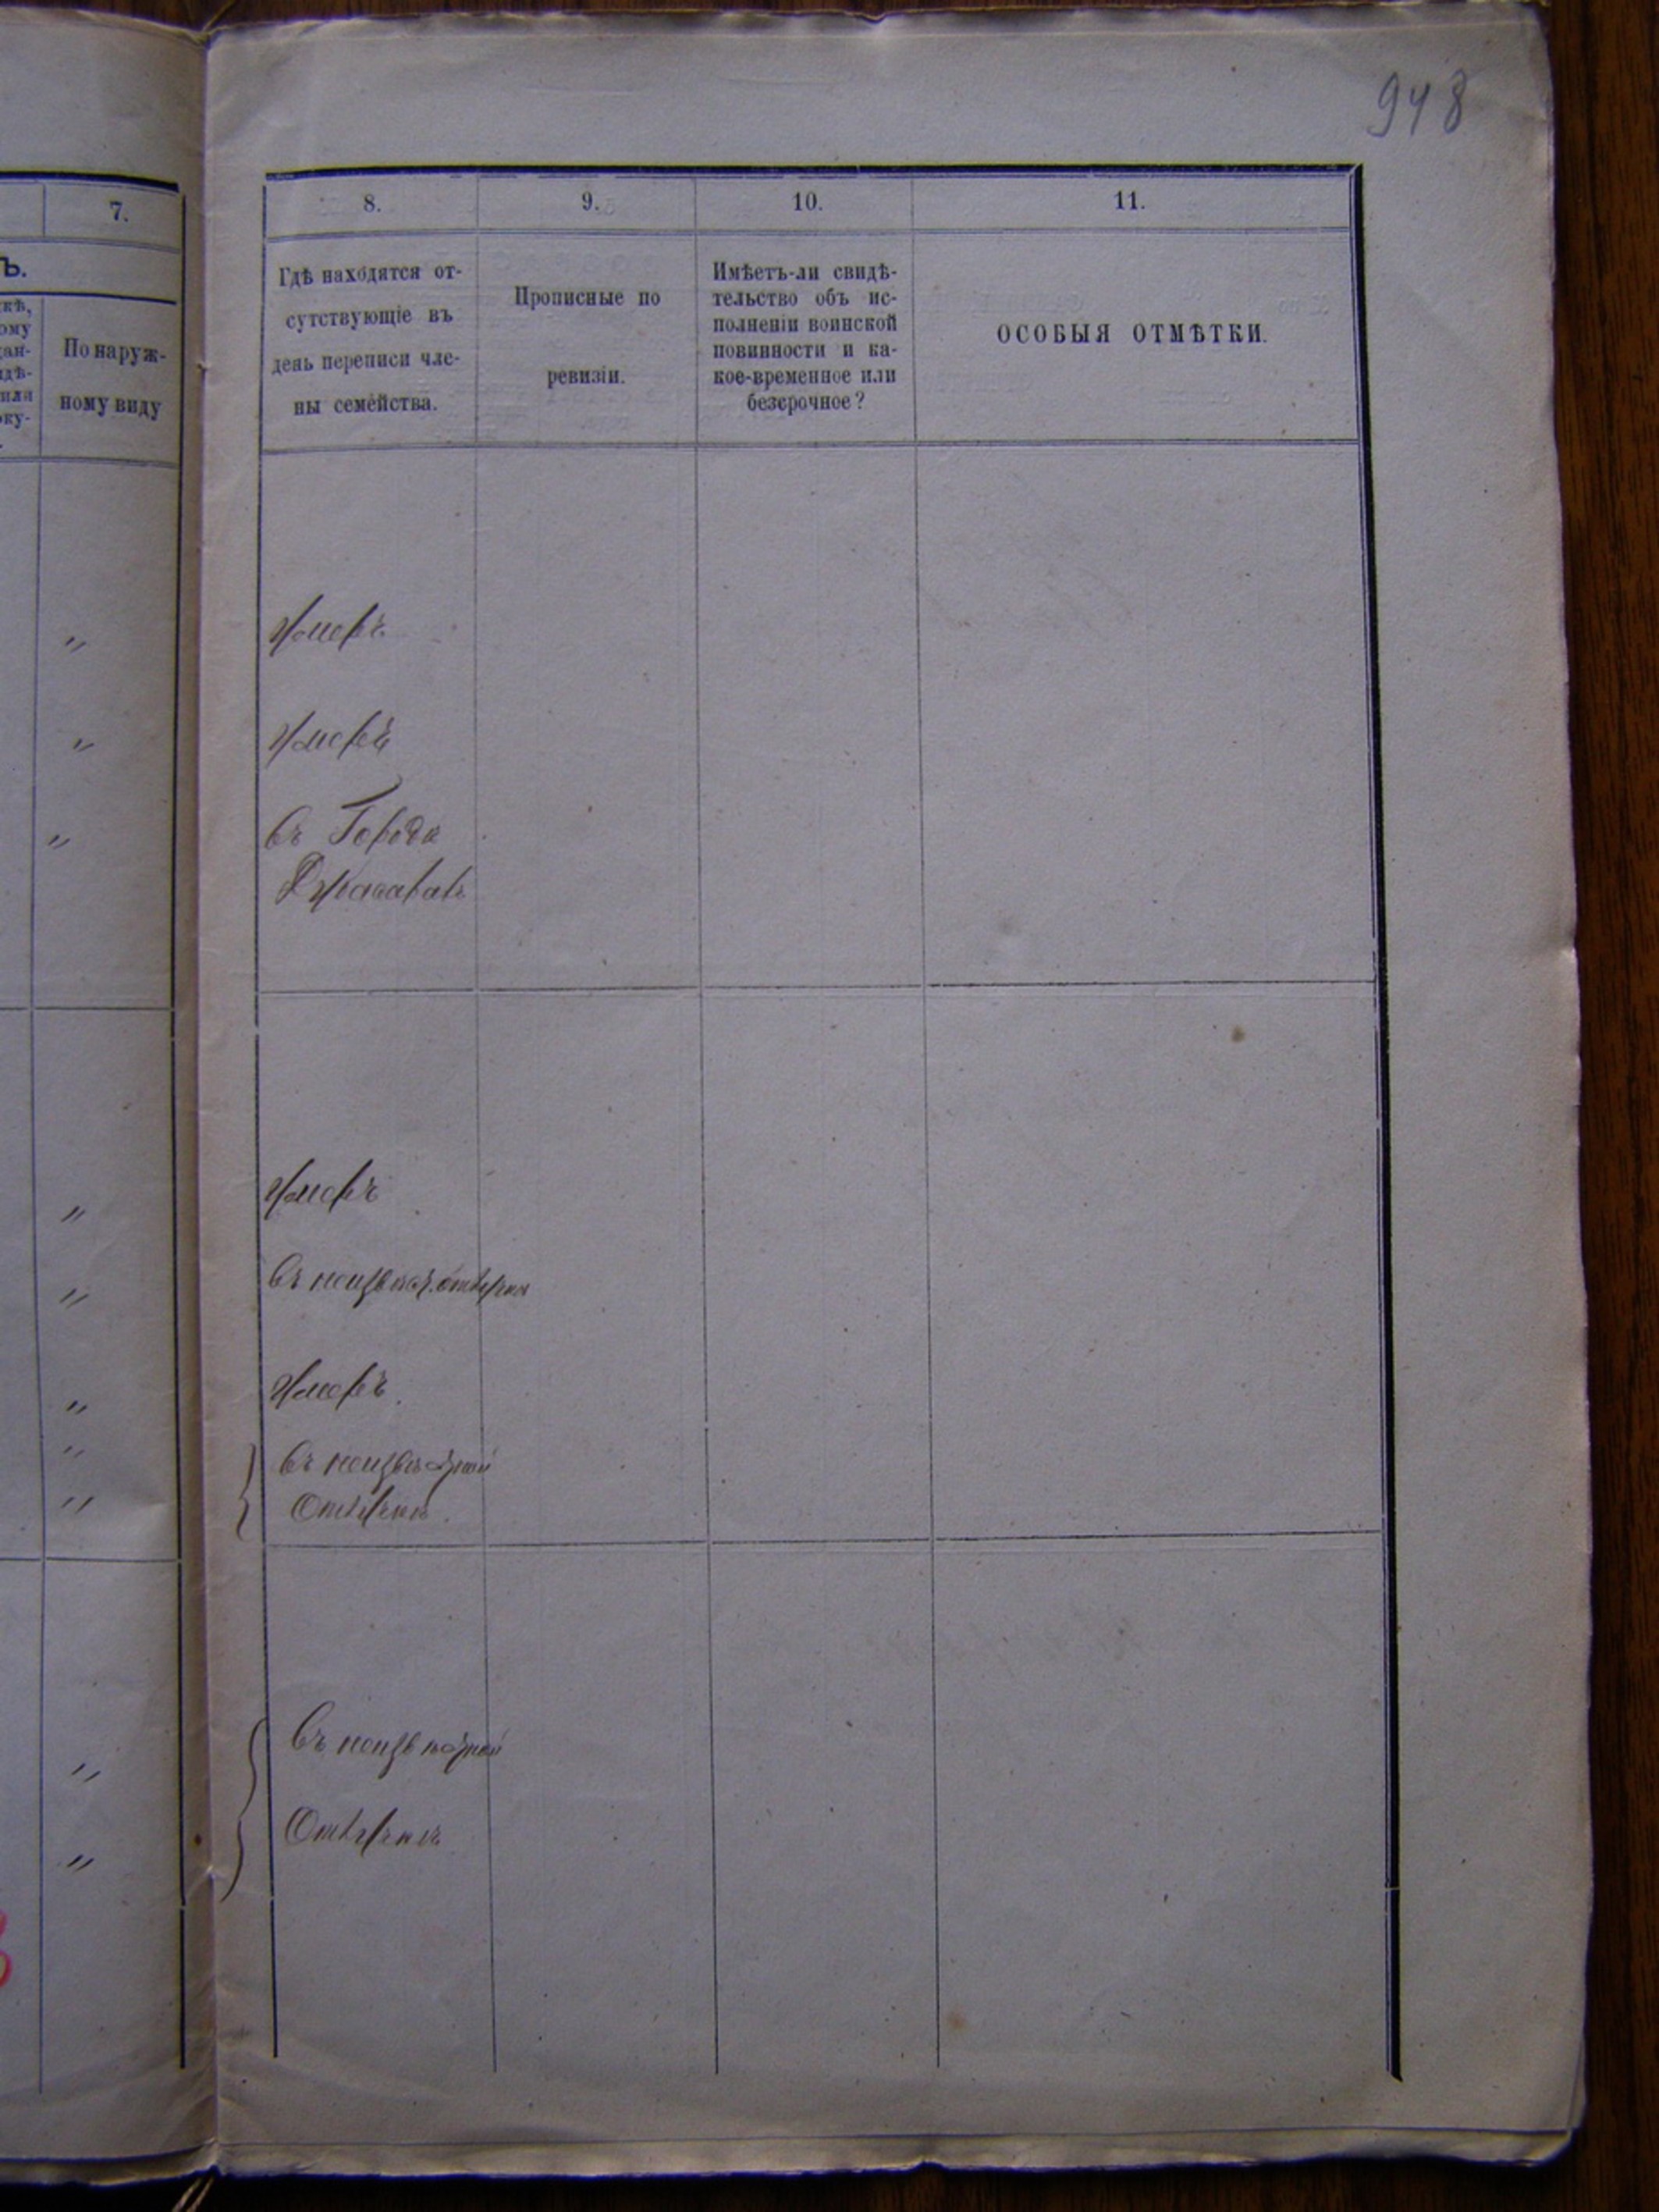 948
7.
Ъ.
По наруж-
ному виду
8.
9.
10.
11.
Гдѣ находятся от-
сутствующіе въ
день переписи чле-
ны семейства.
Прописные по
ревизіи.
Имѣетъ-ли свидѣ-
тельство объ ис-
полненіи воинской
повинности и ка-
кое-временное или
безсрочное?
ОСОБЫЯ ОТМѢТКИ.
"
Умеръ
"
Умеръ
"
Въ Городѣ
"
Умеръ
"
Въ неизвѣст. отлучкѣ
"
Умеръ.
"
Въ неизвѣстной
"
Отлучкѣ.
"
Въ неизвѣстной
Отлучкѣ
"